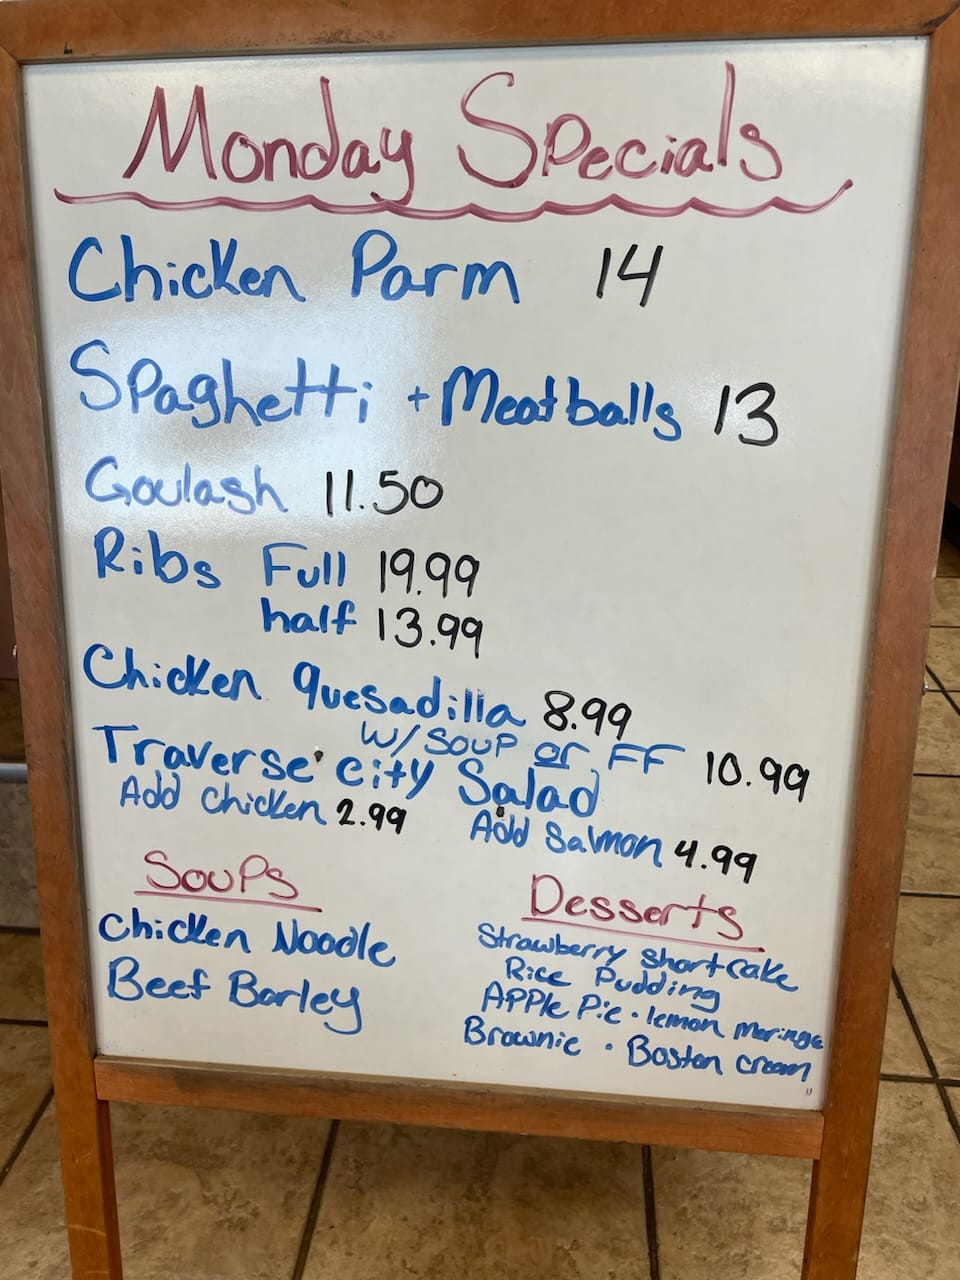 Monday Specials
Chicken Parm 14
Spaghetti + Meatballs 13
Goulash 11.50
Ribs Full 19.99
half 13.99
Chicken quesadilla 8.99
w/ soup or FF
Traverse City Salad 10.99
Add chicken 2.99 Add Salmon 4.99
Soups
Chicken Noodle
Beef Barley
Desserts
Strawberry Shortcake
Rice Pudding
Apple Pie · lemon maringe
Brownie · Boston cream